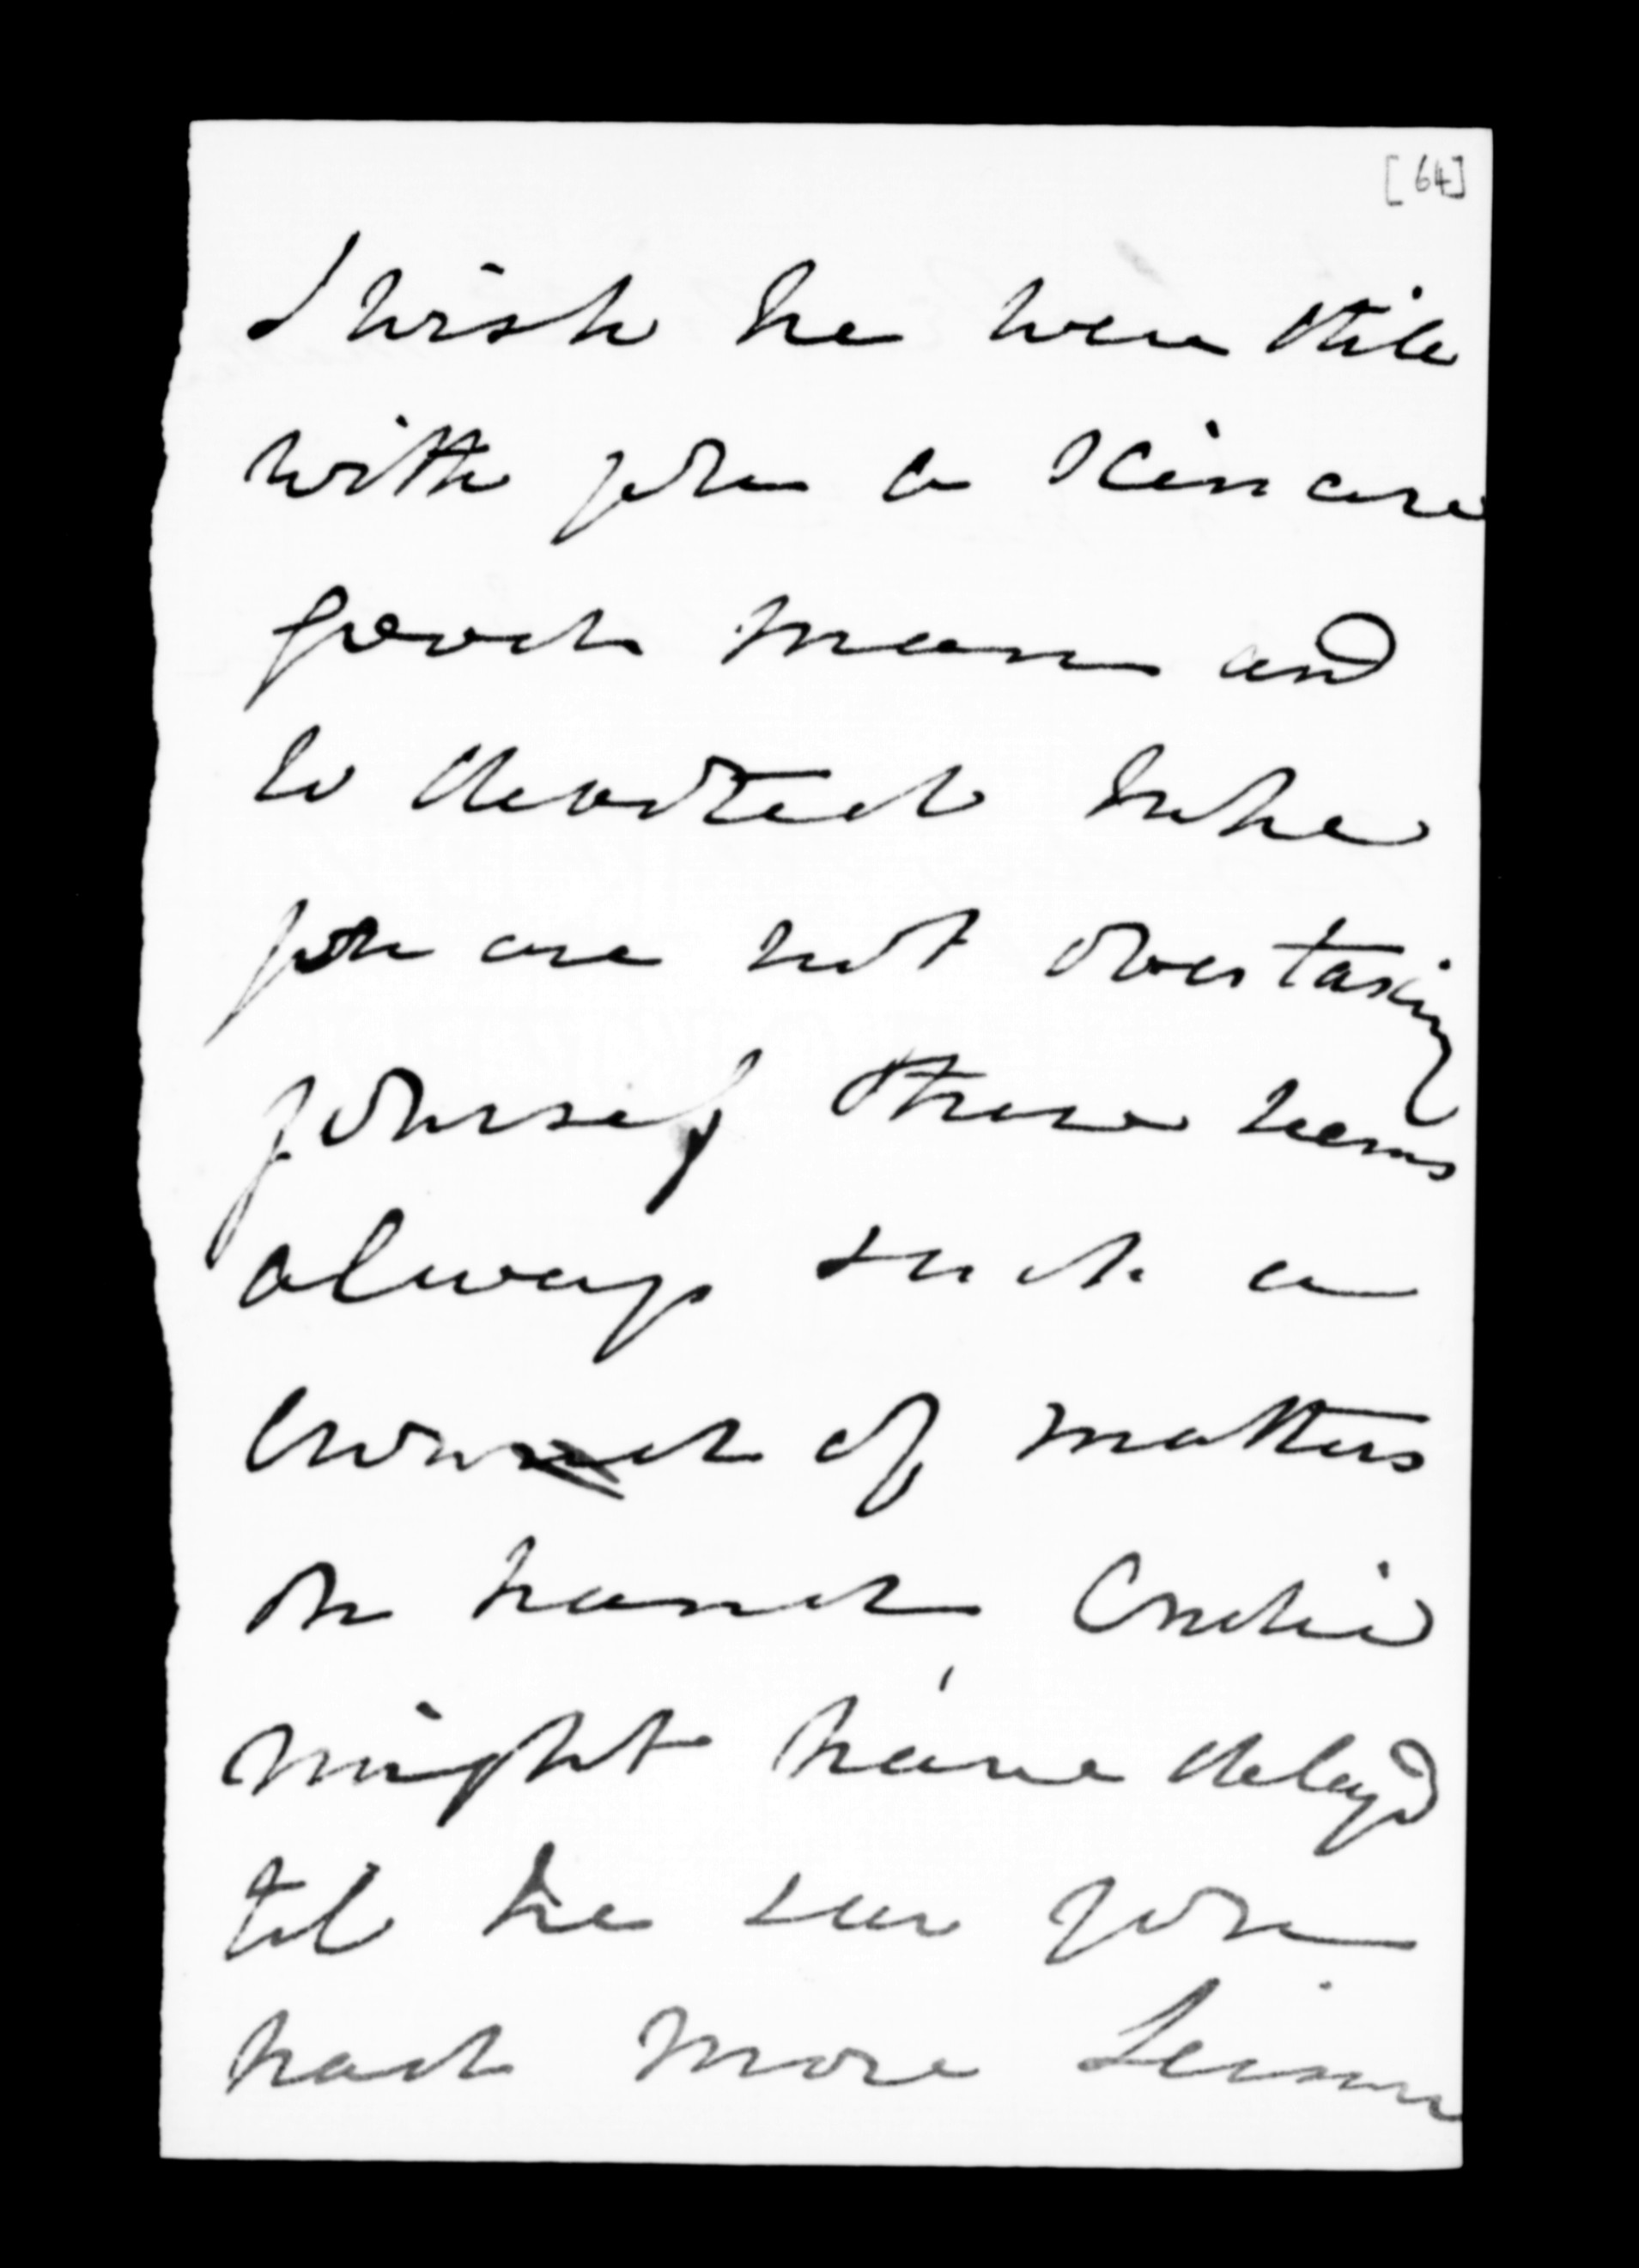 [64]
I wish he were still
with you a sincere
good man and
so devoted I hope
you are not overtaxing
yourself there seems
always such a
crowd of matters
on hand
might have delay'd
til he saw you
had more leisure